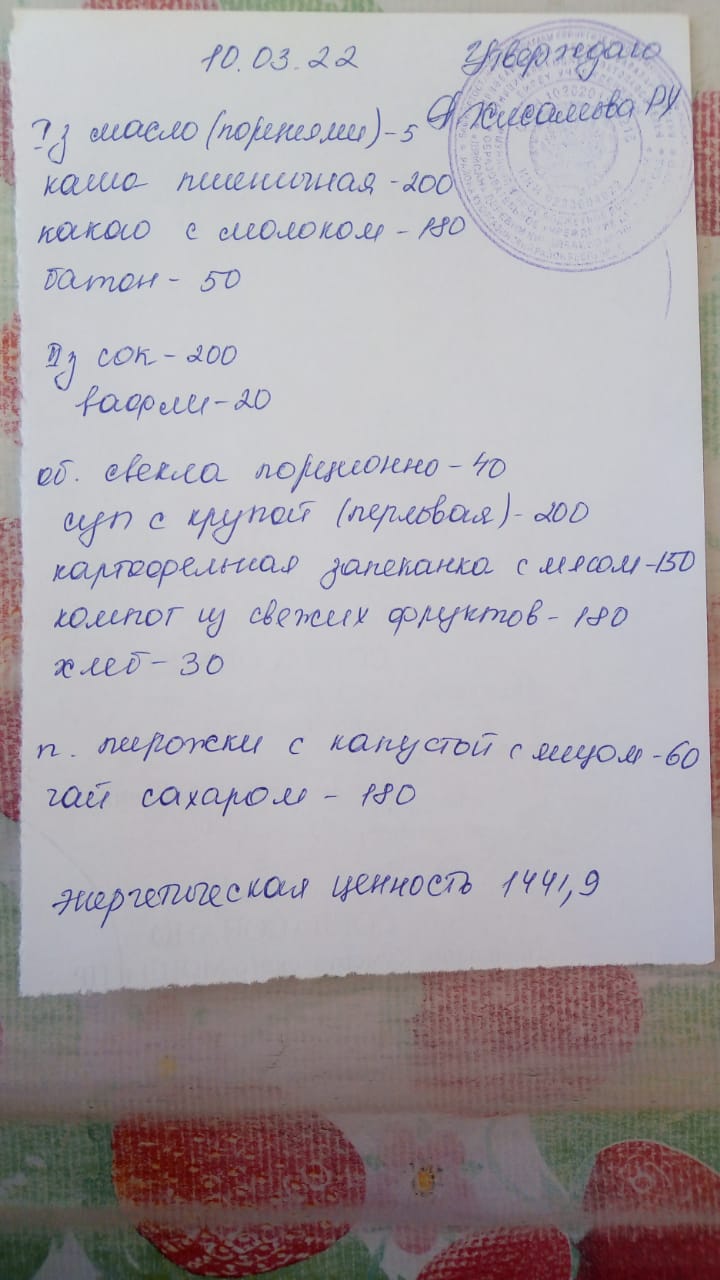 10.03.22 Утверждаю
Хисамова РУ
I з масло (порциями) - 5
каша пшеничная - 200
какао с молоком - 180
батон - 50
II з сок - 200
вафли - 20
об. свекла порционно - 40
суп с крупой (перловая) - 200
картофельная запеканка с мясом - 150
компот из свежих фруктов - 180
хлеб - 30
п. пирожки с капустой с яицом - 60
чай сахаром - 180
энергетическая ценность 1441,9